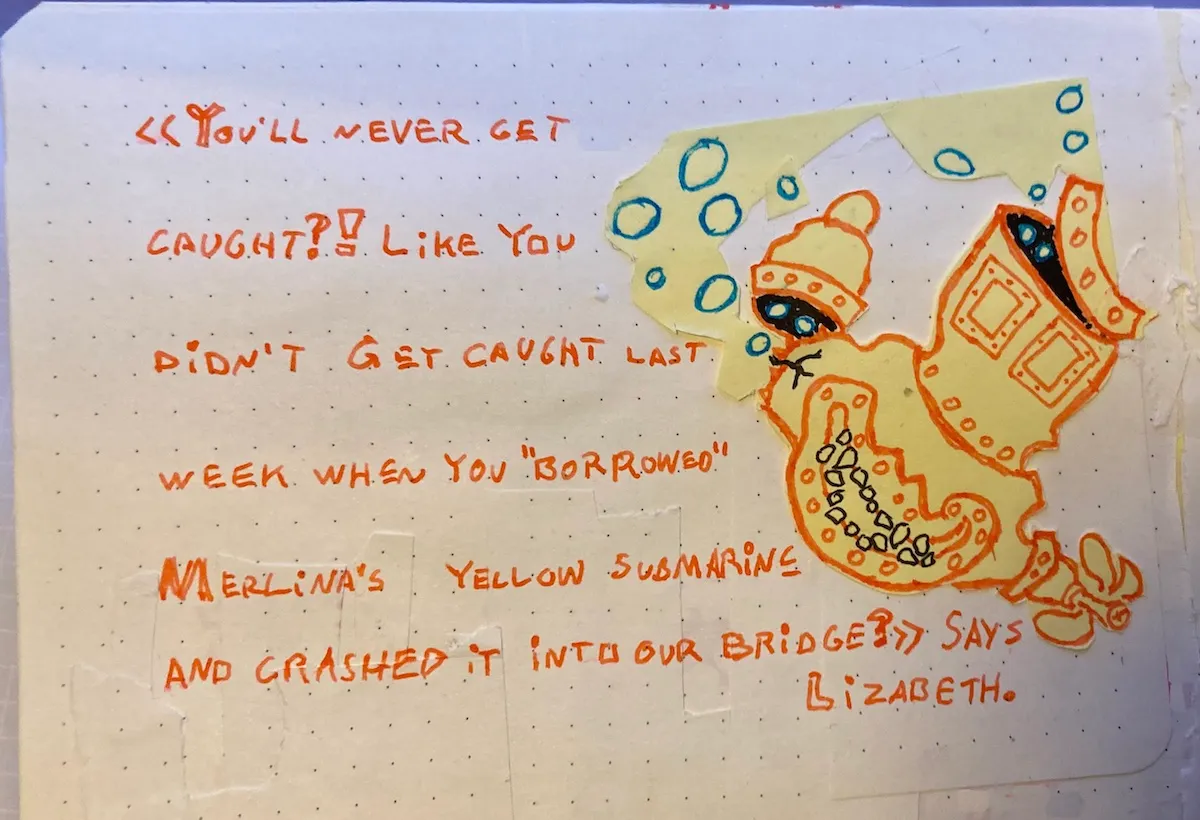 «YOU'LL NEVER GET
CAUGHT?! LIKE YOU
DIDN'T GET CAUGHT LAST
WEEK WHEN YOU "BORROWED"
MERLINA'S YELLOW SUBMARINE
AND CRASHED IT INTO OUR BRIDGE?» SAYS
LIZABETH.